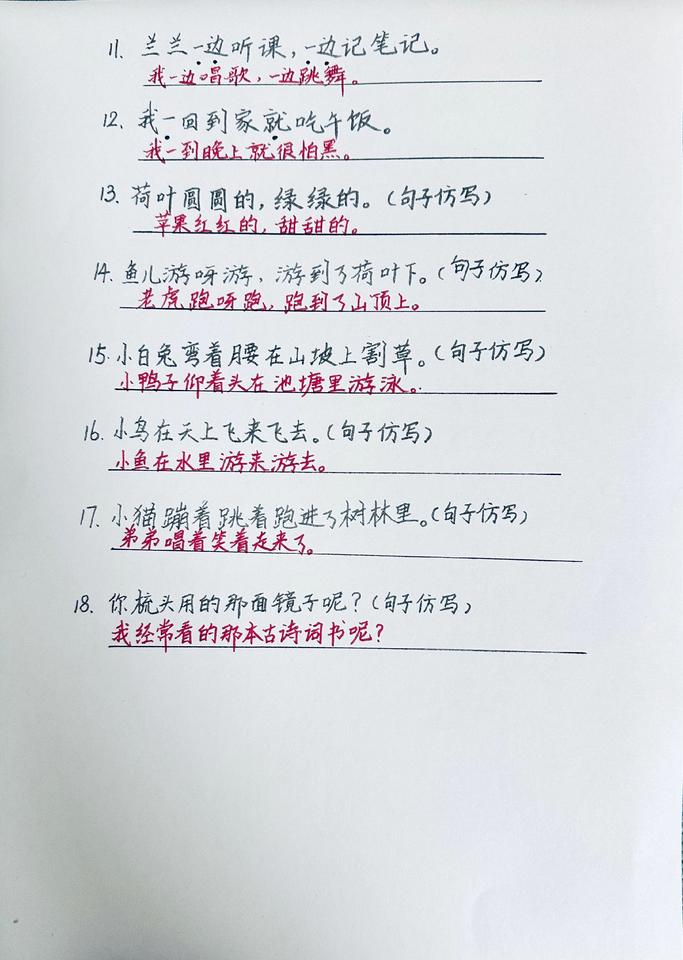 11. 兰兰一边听课，一边记笔记。
我一边唱歌，一边跳舞。
12. 我一回到家就吃午饭。
我一到晚上就很怕黑。
13. 荷叶圆圆的，绿绿的。（句子仿写）
苹果红红的，甜甜的。
14. 鱼儿游呀游，游到了荷叶下。（句子仿写）
老虎跑呀跑，跑到了山顶上。
15. 小白兔弯着腰在山坡上割草。（句子仿写）
小鸭子仰着头在池塘里游泳。
16. 小鸟在天上飞来飞去。（句子仿写）
小鱼在水里游来游去。
17. 小猫蹦着跳着跑进了树林里。（句子仿写）
弟弟唱着笑着走来了。
18. 你梳头用的那面镜子呢？（句子仿写）
我经常看的那本古诗词书呢？